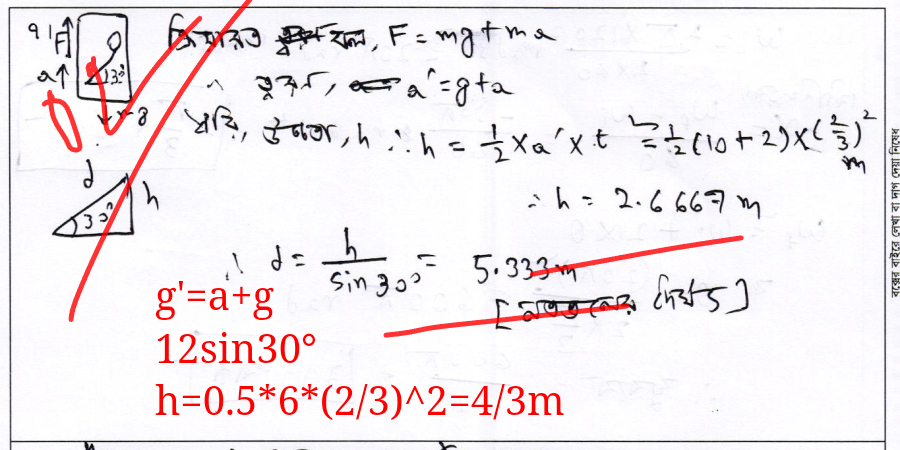 91
F
a
30°
g
ত্বরণ হলে, F = mg + ma
∴ ত্বরণ, a' = g + a
ধরি, উচ্চতা, h ∴ h = 1/2 × a' × t² = 1/2 (10 + 2) × (2/3)² m
d
h
30°
∴ h = 2.6667 m
∴ d = h / sin30° = 5.333m
[নততলের দৈর্ঘ্য]
g'=a+g
12sin30°
h=0.5*6*(2/3)^2=4/3m
বক্সের বাইরে লেখা বা দাগ দেয়া নিষেধ